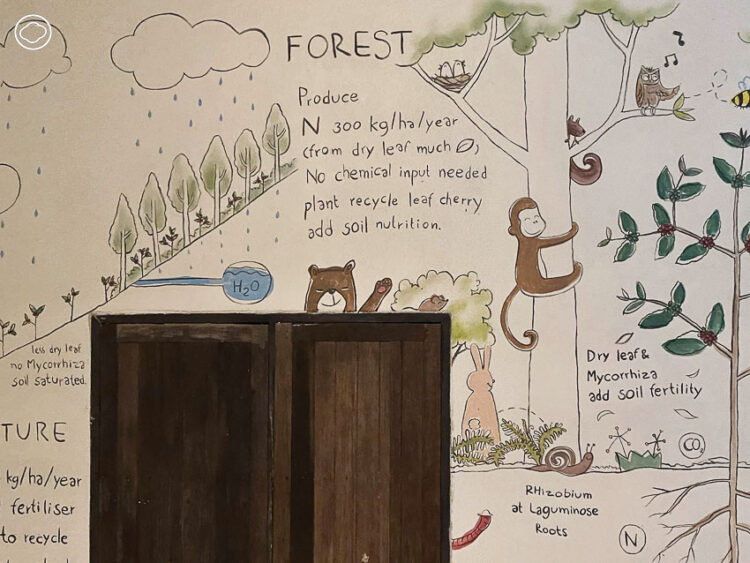 FOREST
Produce
N 300 kg/ha/year
(from dry leaf much)
No chemical input needed
plant recycle leaf cherry
add soil nutrition.
H2O
less dry leaf
no Mycorrhiza
soil saturated.
TURE
kg/ha/year
fertiliser
to recycle
Dry leaf &
Mycorrhiza
add soil fertility
CO2
RHizobium
at Laguminose
Roots
N